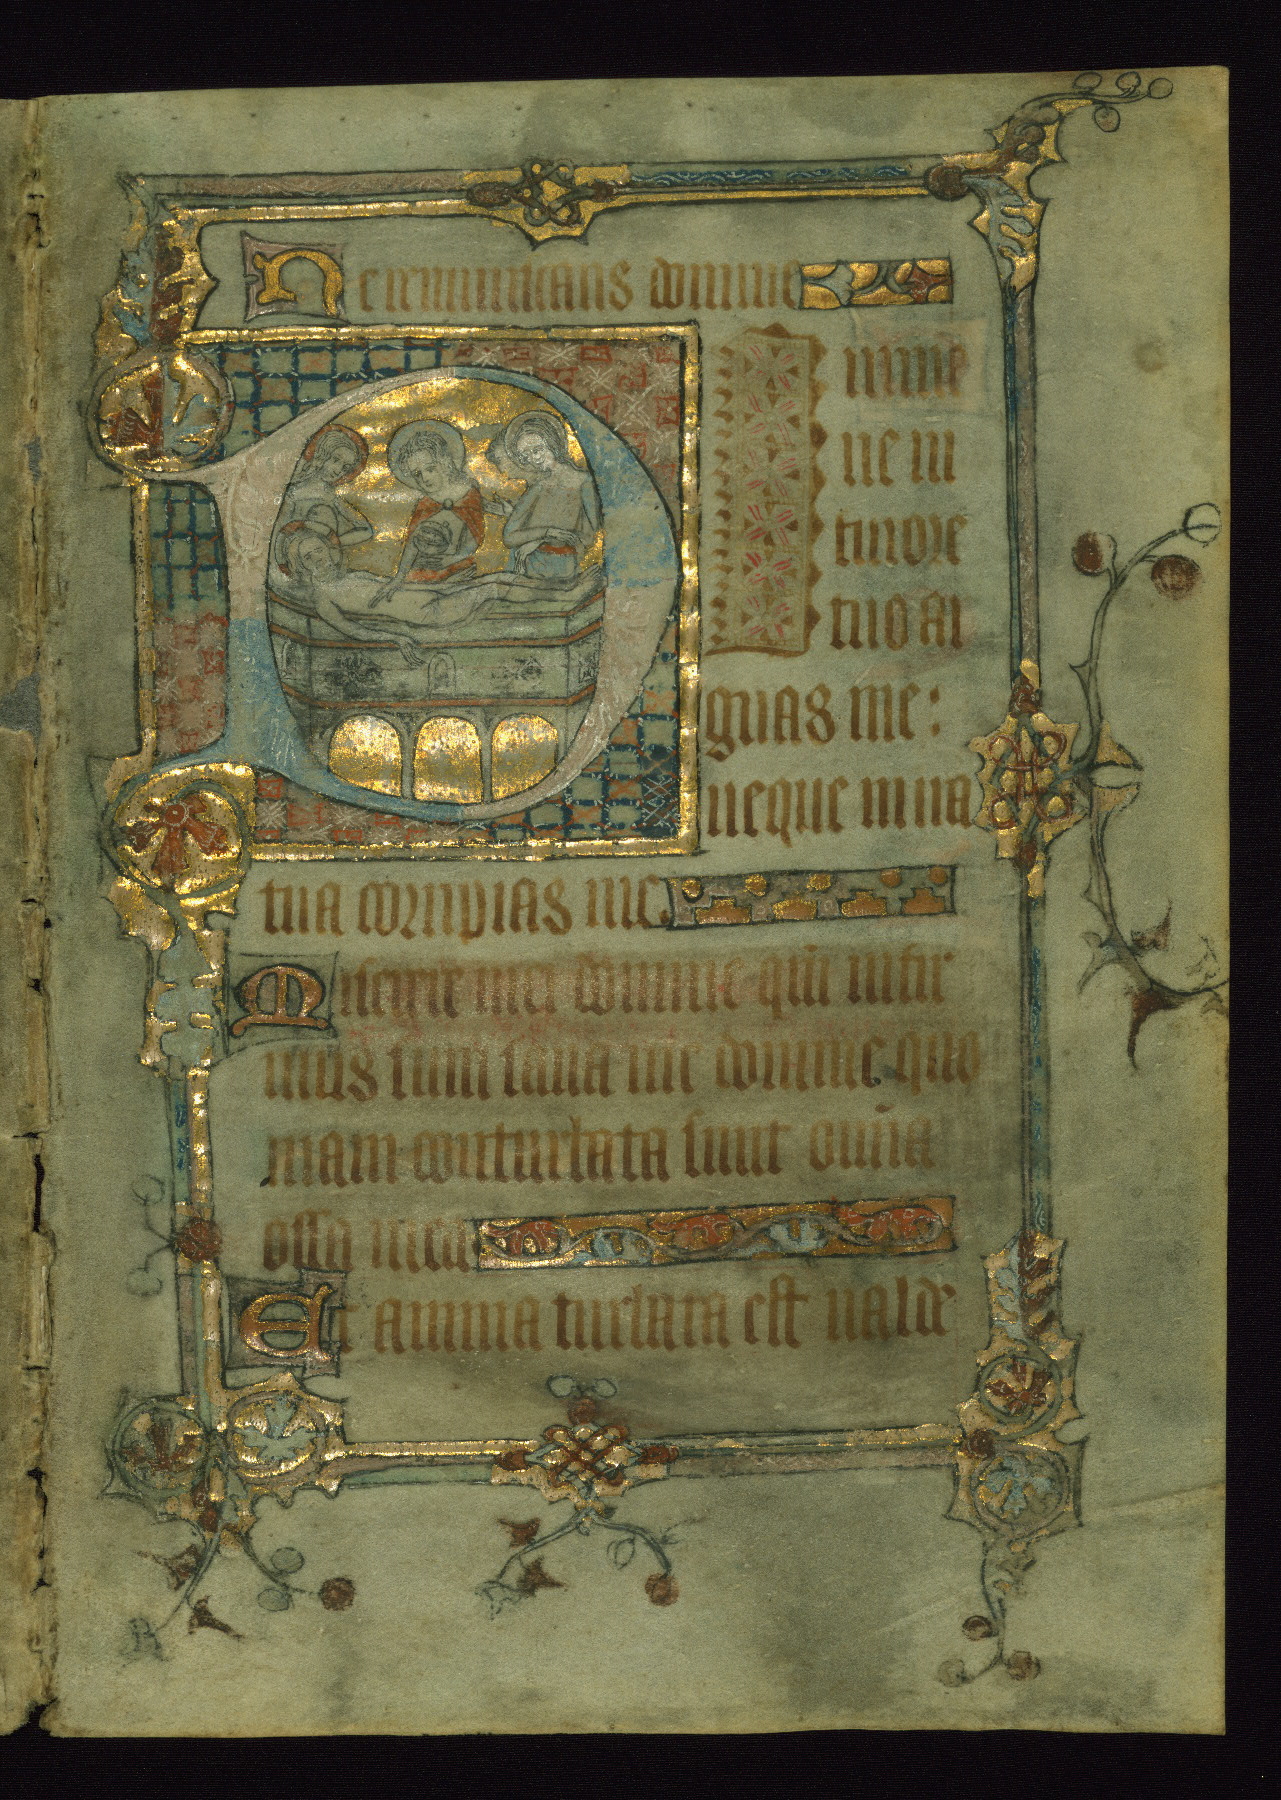 Ne reminiscaris domine
Domine
ne in
furore
tuo ar
guas me:
neque in ira
tua corripias me
Miserere mei domine qm̄ infir
mus sum sana me domine quo
niam conturbata sunt omīa
ossa mea
Et anima turbata est ualde